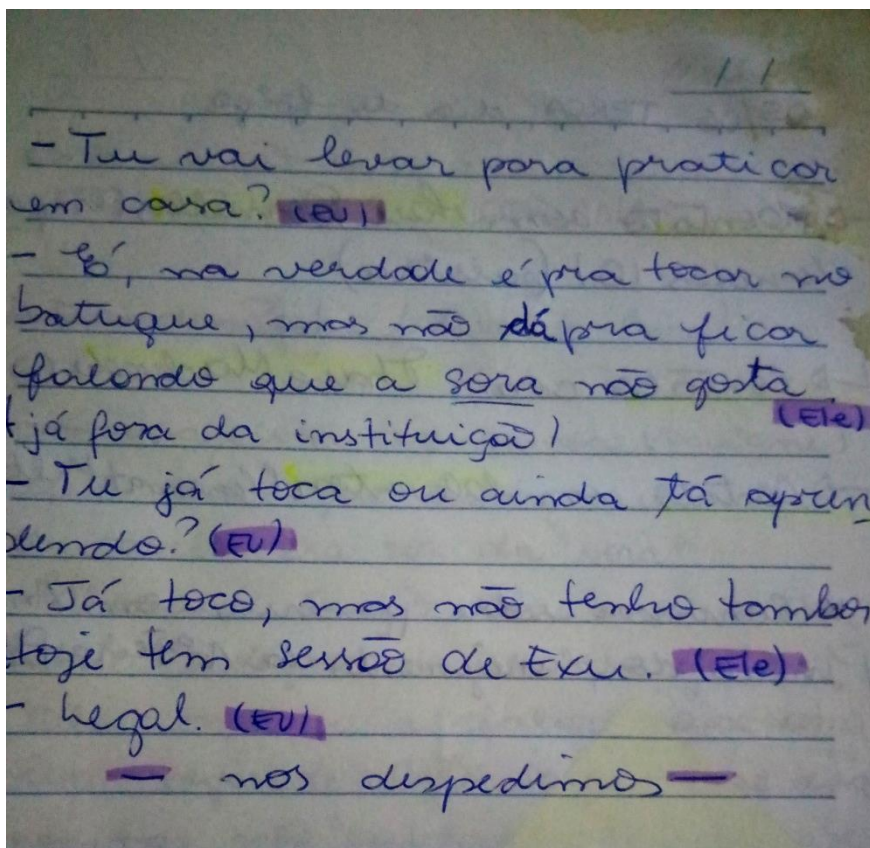 / /
- Tu vai levar para praticar
em casa? (EU)
- Só, na verdade é pra tocar no
batuque, mas não dá pra ficar
falando que a sora não gosta
(Ele)
(já fora da instituição)
- Tu já toca ou ainda tá apren
dendo? (EU)
- Já toco, mas não tenho tambor
Hoje tem sessão de Exu. (Ele)
- Legal. (EU)
— nos despedimos —